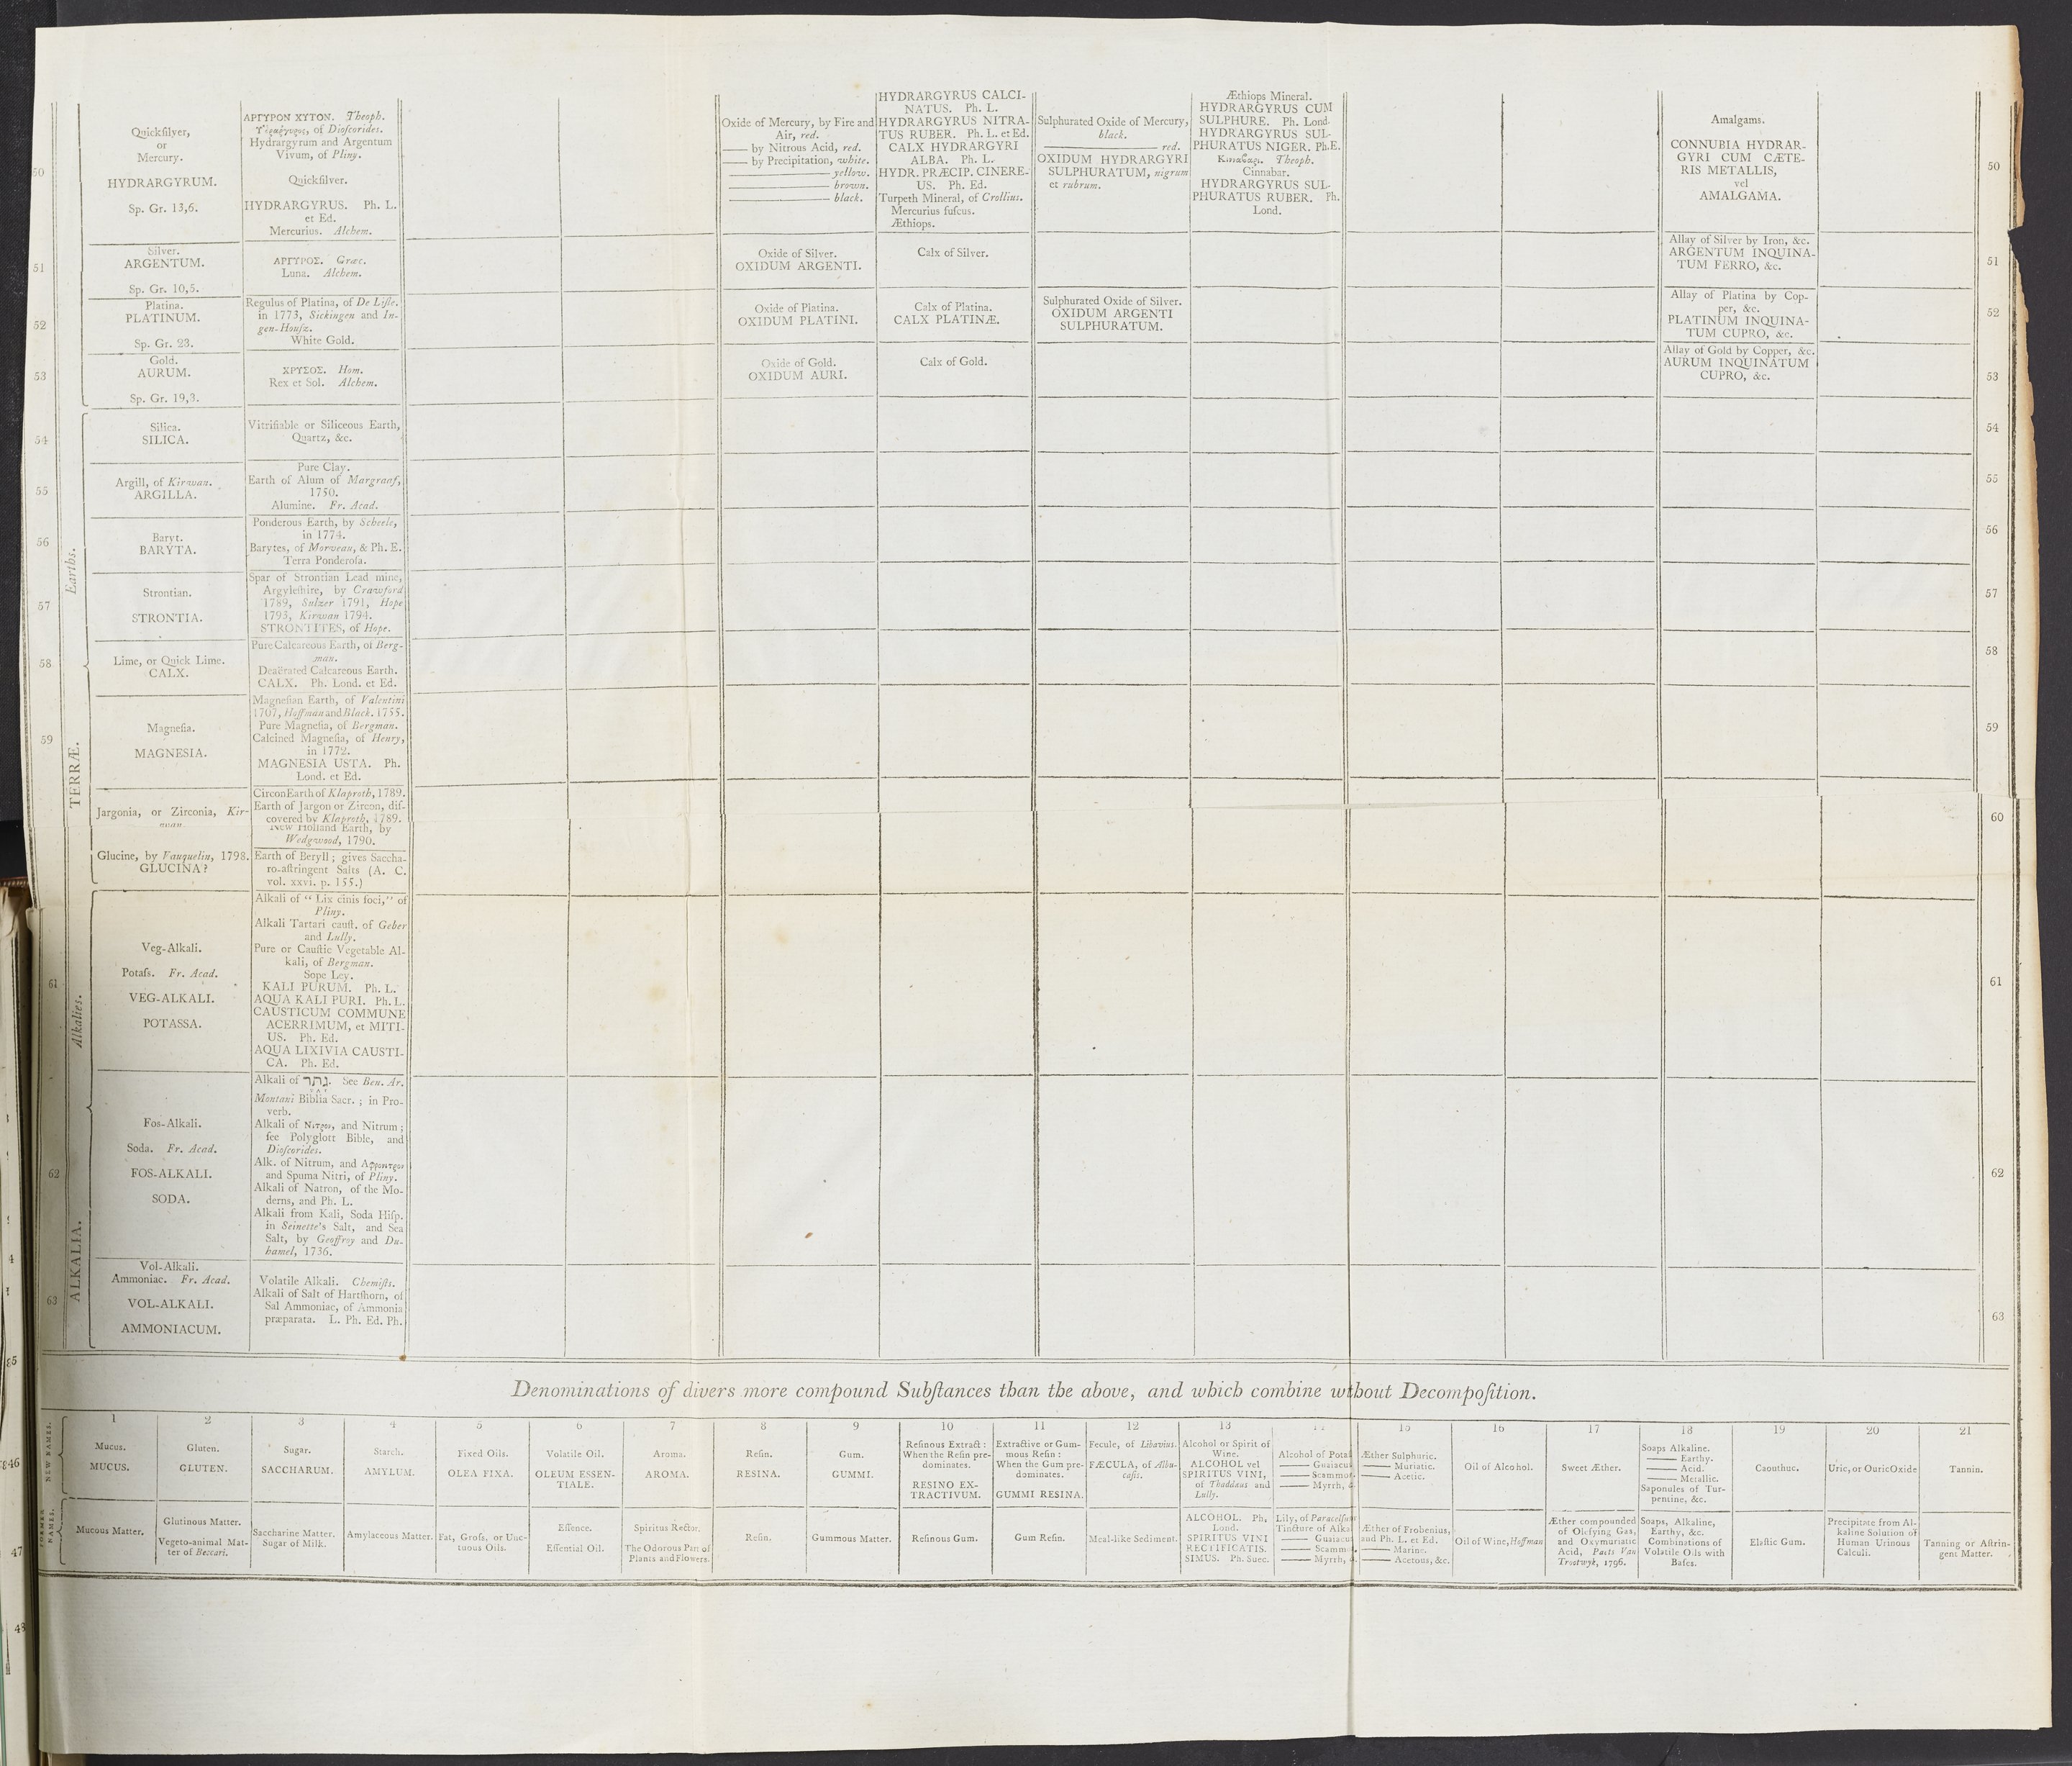 50
Quickſilver,
or
Mercury.
HYDRARGYRUM.
Sp. Gr. 13,6.
ΑΡΓΥΡΟΝ ΧΥΤΟΝ. Theoph.
of Dioſcorides.
Hydrargyrum and Argentum
Vivum, of Pliny.
Quickſilver.
HYDRARGYRUS. Ph. L.
et Ed.
Mercurius. Alchem.
Oxide of Mercury, by Fire and
Air, red.
—— by Nitrous Acid, red.
—— by Precipitation, white.
—— yellow.
—— brown.
—— black.
HYDRARGYRUS CALCI-
NATUS. Ph. L.
HYDRARGYRUS NITRA-
TUS RUBER. Ph. L. et Ed.
CALX HYDRARGYRI
ALBA. Ph. L.
HYDR. PRÆCIP. CINERE-
US. Ph. Ed.
Turpeth Mineral, of Crollius.
Mercurius fuſcus.
Æthiops.
Sulphurated Oxide of Mercury,
black.
—— red.
OXIDUM HYDRARGYRI
SULPHURATUM, nigrum
et rubrum.
Æthiops Mineral.
HYDRARGYRUS CUM
SULPHURE. Ph. Lond.
HYDRARGYRUS SUL-
PHURATUS NIGER. Ph. E.
Theoph.
Cinnabar.
HYDRARGYRUS SUL-
PHURATUS RUBER. Ph.
Lond.
Amalgams.
CONNUBIA HYDRAR-
GYRI CUM CÆTE-
RIS METALLIS,
vel
AMALGAMA.
50
51
Silver.
ARGENTUM.
Sp. Gr. 10,5.
ΑΡΓΥΡΟΣ. Græc.
Luna. Alchem.
Oxide of Silver.
OXIDUM ARGENTI.
Calx of Silver.
Allay of Silver by Iron, &c.
ARGENTUM INQUINA-
TUM FERRO, &c.
51
52
Platina.
PLATINUM.
Sp. Gr. 23.
Regulus of Platina, of De Liſle.
in 1773, Sickingen and In-
gen-Houſz.
White Gold.
Oxide of Platina.
OXIDUM PLATINI.
Calx of Platina.
CALX PLATINÆ.
Sulphurated Oxide of Silver.
OXIDUM ARGENTI
SULPHURATUM.
Allay of Platina by Cop-
per, &c.
PLATINUM INQUINA-
TUM CUPRO, &c.
52
53
Gold.
AURUM.
Sp. Gr. 19,3.
ΧΡΥΣΟΣ. Hom.
Rex et Sol. Alchem.
Oxide of Gold.
OXIDUM AURI.
Calx of Gold.
Allay of Gold by Copper, &c.
AURUM INQUINATUM
CUPRO, &c.
53
TERRÆ. Earths.
54
Silica.
SILICA.
Vitrifiable or Siliceous Earth,
Quartz, &c.
54
55
Argill, of Kirwan.
ARGILLA.
Pure Clay.
Earth of Alum of Margraaf,
1750.
Alumine. Fr. Acad.
55
56
Baryt.
BARYTA.
Ponderous Earth, by Scheele,
in 1774.
Barytes, of Morveau, & Ph. E.
Terra Ponderoſa.
56
57
Strontian.
STRONTIA.
Spar of Strontian Lead mine,
Argyleſhire, by Crawford
1789, Sulzer 1791, Hope
1793, Kirwan 1794.
STRONTITES, of Hope.
57
58
Lime, or Quick Lime.
CALX.
Pure Calcareous Earth, of Berg-
man.
Deaërated Calcareous Earth.
CALX. Ph. Lond. et Ed.
58
59
Magneſia.
MAGNESIA.
Magneſian Earth, of Valentini
1707, Hoffman and Black. 1755.
Pure Magneſia, of Bergman.
Calcined Magneſia, of Henry,
in 1772.
MAGNESIA USTA. Ph.
Lond. et Ed.
59
Jargonia, or Zirconia, Kir-
wan.
Circon Earth of Klaproth, 1789.
Earth of Jargon or Zircon, diſ-
covered by Klaproth, 1789.
New Holland Earth, by
Wedgwood, 1790.
60
Glucine, by Vauquelin, 1798.
GLUCINA?
Earth of Beryll; gives Saccha-
ro-aſtringent Salts (A. C.
vol. xxvi. p. 155.)
ALKALIA. Alkalies.
61
Veg-Alkali.
Potaſs. Fr. Acad.
VEG-ALKALI.
POTASSA.
Alkali of “ Lix cinis foci,” of
Pliny.
Alkali Tartari cauſt. of Geber
and Lully.
Pure or Cauſtic Vegetable Al-
kali, of Bergman.
Sope Ley.
KALI PURUM. Ph. L.
AQUA KALI PURI. Ph. L.
CAUSTICUM COMMUNE
ACERRIMUM, et MITI-
US. Ph. Ed.
AQUA LIXIVIA CAUSTI-
CA. Ph. Ed.
61
62
Fos-Alkali.
Soda. Fr. Acad.
FOS-ALKALI.
SODA.
Alkali of נתר. See Ben. Ar.
Montani Biblia Sacr.; in Pro-
verb.
Alkali of Νιτρον, and Nitrum;
ſee Polyglott Bible, and
Dioſcorides.
Alk. of Nitrum, and Αφρονιτρον
and Spuma Nitri, of Pliny.
Alkali of Natron, of the Mo-
derns, and Ph. L.
Alkali from Kali, Soda Hiſp.
in Seinette's Salt, and Sea
Salt, by Geoffroy and Du-
hamel, 1736.
62
63
Vol-Alkali.
Ammoniac. Fr. Acad.
VOL-ALKALI.
AMMONIACUM.
Volatile Alkali. Chemiſts.
Alkali of Salt of Hartſhorn, of
Sal Ammoniac, of Ammonia
præparata. L. Ph. Ed. Ph.
63
Denominations of divers more compound Subſtances than the above, and which combine without Decompoſition.
NEW NAMES.
1
Mucus.
MUCUS.
2
Gluten.
GLUTEN.
3
Sugar.
SACCHARUM.
4
Starch.
AMYLUM.
5
Fixed Oils.
OLEA FIXA.
6
Volatile Oil.
OLEUM ESSEN-
TIALE.
7
Aroma.
AROMA.
8
Reſin.
RESINA.
9
Gum.
GUMMI.
10
Reſinous Extract:
When the Reſin pre-
dominates.
RESINO EX-
TRACTIVUM.
11
Extractive or Gum-
mous Reſin:
When the Gum pre-
dominates.
GUMMI RESINA.
12
Fecule, of Libavius.
FÆCULA, of Albu-
caſis.
13
Alcohol or Spirit of
Wine.
ALCOHOL vel
SPIRITUS VINI,
of Thaddæus and
Lully.
Alcohol of Potaſ
—— Guaiacu
—— Scammo
—— Myrrh,
15
Æther Sulphuric.
—— Muriatic.
—— Acetic.
16
Oil of Alcohol.
17
Sweet Æther.
18
Soaps Alkaline.
—— Earthy.
—— Acid.
—— Metallic.
Saponules of Tur-
pentine, &c.
19
Caouthuc.
20
Uric, or Ouric Oxide
21
Tannin.
FORMER NAMES.
Mucous Matter.
Glutinous Matter.
Vegeto-animal Mat-
ter of Beccari.
Saccharine Matter.
Sugar of Milk.
Amylaceous Matter.
Fat, Groſs, or Unc-
tuous Oils.
Eſſence.
Eſſential Oil.
Spiritus Rector.
The Odorous Part of
Plants and Flowers.
Reſin.
Gummous Matter.
Reſinous Gum.
Gum Reſin.
Meal-like Sediment.
ALCOHOL. Ph.
Lond.
SPIRITUS VINI
RECTIFICATIS-
SIMUS. Ph. Suec.
Lily, of Paracelſus
Tincture of Alka
—— Guaiacu
—— Scamm
—— Myrrh,
Æther of Frobenius,
and Ph. L. et Ed.
—— Marine.
—— Acetous, &c.
Oil of Wine, Hoffman
Æther compounded
of Olefying Gas,
and Oxymuriatic
Acid, Paets Van
Trootwyk, 1796.
Soaps, Alkaline,
Earthy, &c.
Combinations of
Volatile Oils with
Baſes.
Elaſtic Gum.
Precipitate from Al-
kaline Solution of
Human Urinous
Calculi.
Tanning or Aſtrin-
gent Matter.